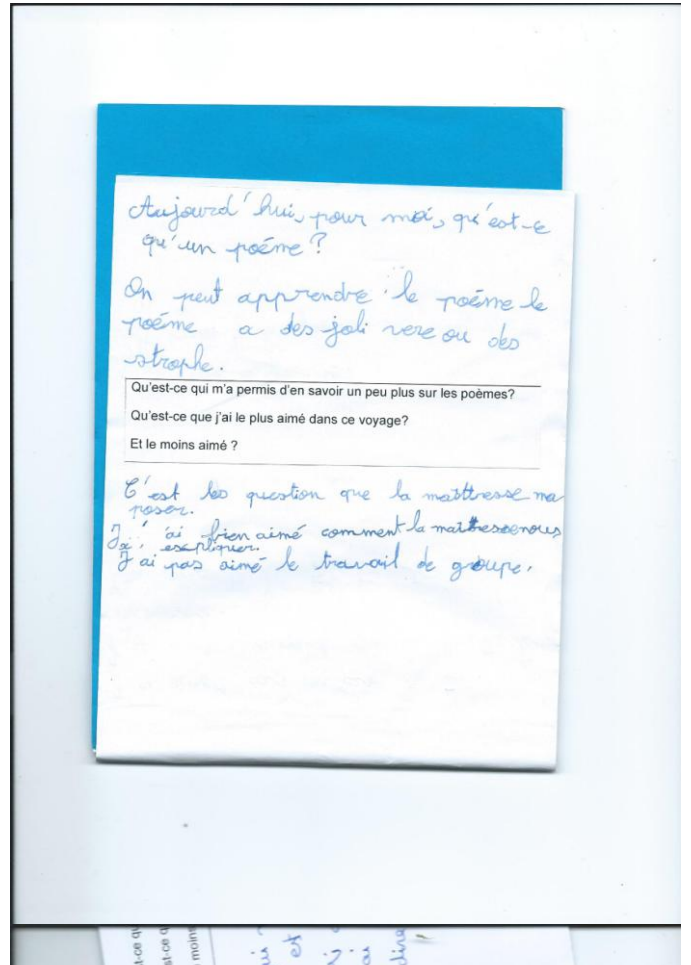 Aujourd'hui, pour moi, qu'est-ce
qu'un poéme?
On peut apprendre le poéme le
poéme a des joli vere ou des
strophe.
Qu'est-ce qui m'a permis d'en savoir un peu plus sur les poèmes?
Qu'est-ce que j'ai le plus aimé dans ce voyage?
Et le moins aimé ?
C'est les question que la maittresse ma
poser.
J'ai bien aimé comment la maitresse nous
a expliquer.
J'ai pas aimé le travail de groupe.
st-ce q
moins
et